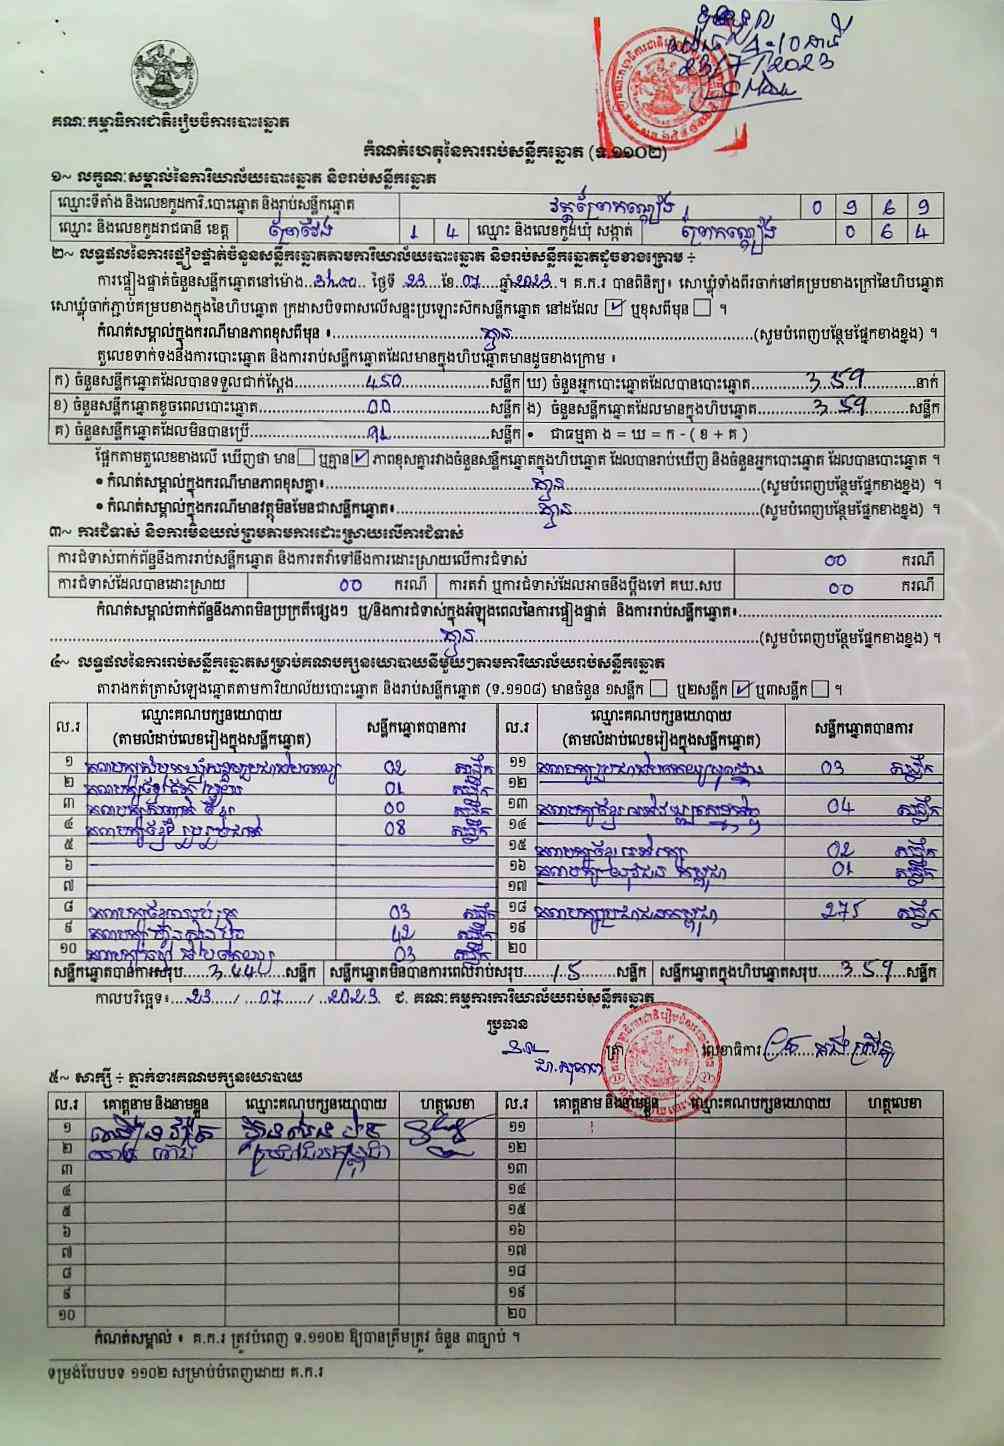 4:10 នាទី
23/7/2023
គណៈកម្មាធិការជាតិរៀបចំការបោះឆ្នោត
កំណត់ហេតុនៃការរាប់សន្លឹកឆ្នោត (ទ.១១០២)
១~ លក្ខណៈសម្គាល់នៃការិយាល័យបោះឆ្នោត និងរាប់សន្លឹកឆ្នោត
ឈ្មោះទីតាំង និងលេខកូដការិ.បោះឆ្នោត និងរាប់សន្លឹកឆ្នោត វត្តព្រែកណ្តៀង 0 9 6 9
ឈ្មោះ និងលេខកូដរាជធានី ខេត្ត ព្រៃវែង 1 4 ឈ្មោះ និងលេខកូដឃុំ សង្កាត់ ព្រែកណ្តៀង 0 6 4
២~ លទ្ធផលនៃការផ្ទៀងផ្ទាត់ចំនួនសន្លឹកឆ្នោតតាមការិយាល័យបោះឆ្នោត និងរាប់សន្លឹកឆ្នោតដូចខាងក្រោម ÷
ការផ្ទៀងផ្ទាត់ចំនួនសន្លឹកឆ្នោតនៅម៉ោង 3:00 ថ្ងៃទី 23 ខែ 07 ឆ្នាំ 2023 ។ គ.ក.រ បានពិនិត្យ៖ សោឃ្លុំទាំងពីរចាក់នៅគម្របខាងក្រៅនៃហិបឆ្នោត
សោឃ្លុំចាក់ភ្ជាប់គម្របខាងក្នុងនៃហិបឆ្នោត ក្រដាសបិទពាសលើសន្ទះប្រឡោះស៊កសន្លឹកឆ្នោត នៅដដែល ☑ ឬខុសពីមុន ☐ ។
កំណត់សម្គាល់ក្នុងករណីមានភាពខុសពីមុន ៖ គ្មាន (សូមបំពេញបន្ថែមផ្នែកខាងខ្នង) ។
តួលេខទាក់ទងនឹងការបោះឆ្នោត និងការរាប់សន្លឹកឆ្នោតដែលមានក្នុងហិបឆ្នោតមានដូចខាងក្រោម ៖
ក) ចំនួនសន្លឹកឆ្នោតដែលបានទទួលជាក់ស្តែង 450 សន្លឹក ឃ) ចំនួនអ្នកបោះឆ្នោតដែលបានបោះឆ្នោត 359 នាក់
ខ) ចំនួនសន្លឹកឆ្នោតខូចពេលបោះឆ្នោត 00 សន្លឹក ង) ចំនួនសន្លឹកឆ្នោតដែលមានក្នុងហិបឆ្នោត 359 សន្លឹក
គ) ចំនួនសន្លឹកឆ្នោតដែលមិនបានប្រើ 91 សន្លឹក • ជាធម្មតា ង = ឃ = ក - ( ខ + គ )
ផ្អែកតាមតួលេខខាងលើ ឃើញថា មាន ☐ ឬគ្មាន ☑ ភាពខុសគ្នារវាងចំនួនសន្លឹកឆ្នោតក្នុងហិបឆ្នោត ដែលបានរាប់ឃើញ និងចំនួនអ្នកបោះឆ្នោត ដែលបានបោះឆ្នោត ។
• កំណត់សម្គាល់ក្នុងករណីមានភាពខុសគ្នា៖ គ្មាន (សូមបំពេញបន្ថែមផ្នែកខាងខ្នង) ។
• កំណត់សម្គាល់ក្នុងករណីមានវត្ថុមិនមែនជាសន្លឹកឆ្នោត៖ គ្មាន (សូមបំពេញបន្ថែមផ្នែកខាងខ្នង) ។
៣~ ការជំទាស់ និងការមិនយល់ព្រមតាមការដោះស្រាយលើការជំទាស់
ការជំទាស់ពាក់ព័ន្ធនឹងការរាប់សន្លឹកឆ្នោត និងការតវ៉ាទៅនឹងការដោះស្រាយលើការជំទាស់ 00 ករណី
ការជំទាស់ដែលបានដោះស្រាយ 00 ករណី ការតវ៉ា ឬការជំទាស់ដែលអាចនឹងប្តឹងទៅ គឃ.សប 00 ករណី
កំណត់សម្គាល់ពាក់ព័ន្ធនឹងភាពមិនប្រក្រតីផ្សេងៗ ឬ/និងការជំទាស់ក្នុងអំឡុងពេលនៃការផ្ទៀងផ្ទាត់ និងការរាប់សន្លឹកឆ្នោត៖
គ្មាន (សូមបំពេញបន្ថែមផ្នែកខាងខ្នង) ។
៤~ លទ្ធផលនៃការរាប់សន្លឹកឆ្នោតសម្រាប់គណបក្សនយោបាយនីមួយៗតាមការិយាល័យរាប់សន្លឹកឆ្នោត
តារាងកត់ត្រាសំឡេងឆ្នោតតាមការិយាល័យបោះឆ្នោត និងរាប់សន្លឹកឆ្នោត (ទ.១១០៨) មានចំនួន ១សន្លឹក ☐ ឬ២សន្លឹក ☑ ឬ៣សន្លឹក ☐ ។
ល.រ ឈ្មោះគណបក្សនយោបាយ (តាមលំដាប់លេខរៀងក្នុងសន្លឹកឆ្នោត) សន្លឹកឆ្នោតបានការ ល.រ ឈ្មោះគណបក្សនយោបាយ (តាមលំដាប់លេខរៀងក្នុងសន្លឹកឆ្នោត) សន្លឹកឆ្នោតបានការ
១ 02 សន្លឹក ១១ 03 សន្លឹក
២ 01 សន្លឹក ១២
៣ 00 សន្លឹក ១៣ 04 សន្លឹក
៤ 08 សន្លឹក ១៤
៥ ១៥ 02 សន្លឹក
៦ ១៦ គណបក្សយុវជនកម្ពុជា 01 សន្លឹក
៧ ១៧
៨ 03 សន្លឹក ១៨ គណបក្សប្រជាជនកម្ពុជា 275 សន្លឹក
៩ 42 សន្លឹក ១៩
១០ 03 សន្លឹក ២០
សន្លឹកឆ្នោតបានការសរុប 344 សន្លឹក សន្លឹកឆ្នោតមិនបានការពេលរាប់សរុប 15 សន្លឹក សន្លឹកឆ្នោតក្នុងហិបឆ្នោតសរុប 359 សន្លឹក
កាលបរិច្ឆេទ៖ 23 / 07 / 2023 ជ. គណៈកម្មការការិយាល័យរាប់សន្លឹកឆ្នោត
ប្រធាន
ត្រា លេខាធិការ
៥~ សាក្សី ÷ ភ្នាក់ងារគណបក្សនយោបាយ
ល.រ គោត្តនាម និងនាមខ្លួន ឈ្មោះគណបក្សនយោបាយ ហត្ថលេខា ល.រ គោត្តនាម និងនាមខ្លួន ឈ្មោះគណបក្សនយោបាយ ហត្ថលេខា
១ ១១
២ ប្រជាជនកម្ពុជា ១២
៣ ១៣
៤ ១៤
៥ ១៥
៦ ១៦
៧ ១៧
៨ ១៨
៩ ១៩
១០ ២០
កំណត់សម្គាល់ ៖ គ.ក.រ ត្រូវបំពេញ ទ.១១០២ ឱ្យបានត្រឹមត្រូវ ចំនួន ៣ច្បាប់ ។
ទម្រង់បែបបទ ១១០២ សម្រាប់បំពេញដោយ គ.ក.រ